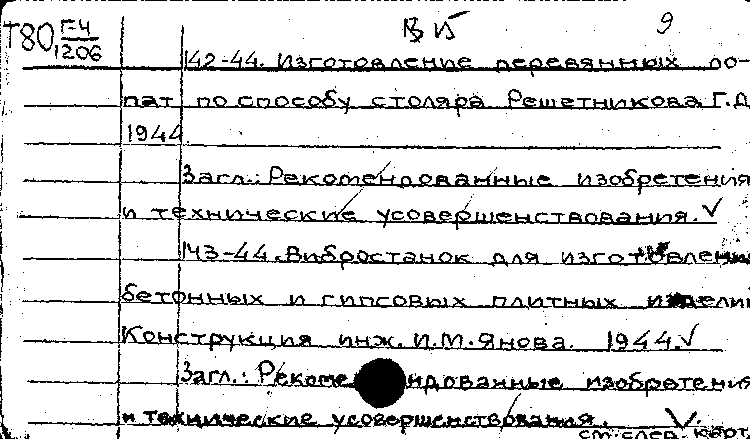 Т80 Г-4 В 15 9
1206
142-44. Изготовление деревянных ло-
пат по способу столяра Решетникова Г.Д
1944
Загл.: Рекомендованные изобретения
и технические усовершенствования. ✓
143-44. Вибростанок для изготовлени
бетонных и гипсовых плитных издели
Конструкция инж. И.М. Янова. 1944. ✓
Загл.: Рекоме ндованные изобретения
и технические усовершенствования. ✓
см. след. карт.